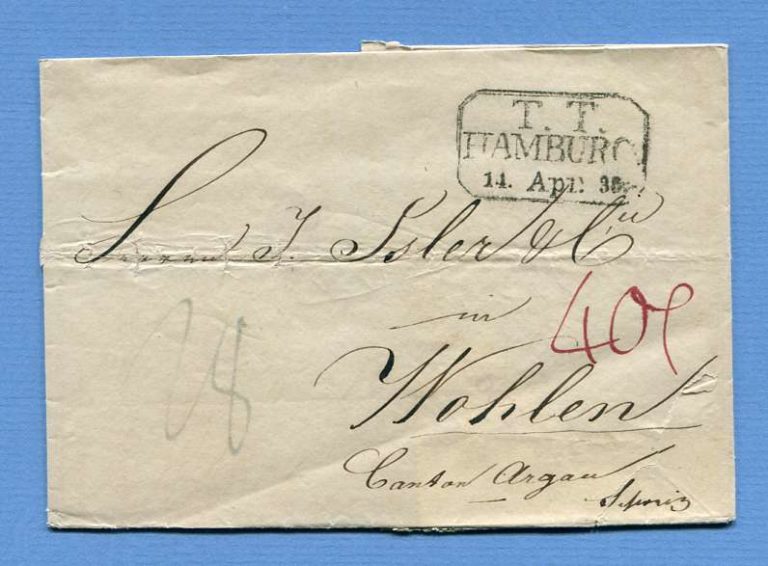 T. T.
HAMBURG
14. Apr. 36
Herren J. Isler & Cie
in
40
Wohlen
Canton Argau
Schweiz